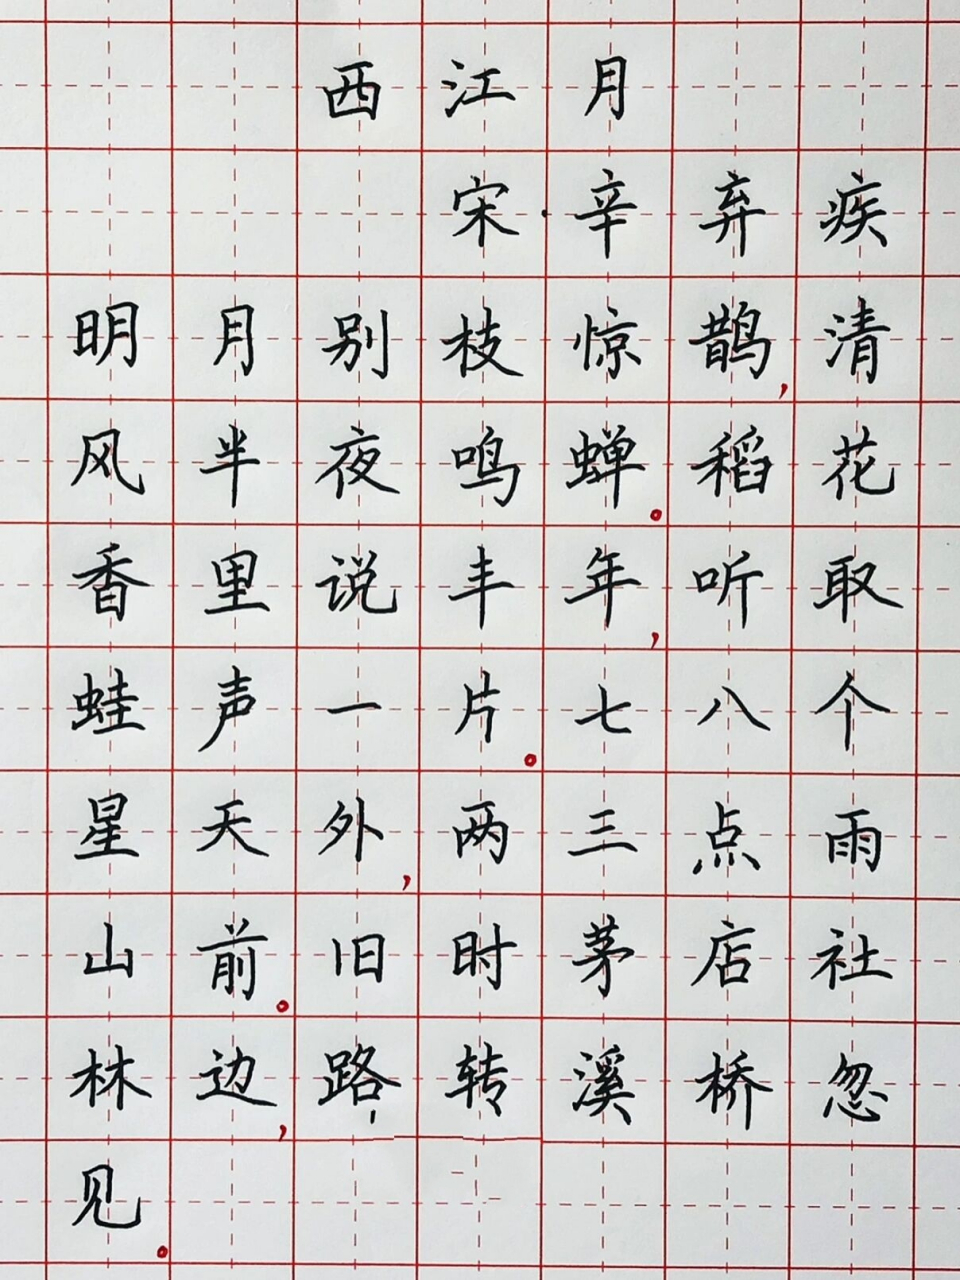 西江月
宋·辛弃疾
明月别枝惊鹊,清
风半夜鸣蝉。稻花
香里说丰年,听取
蛙声一片。七八个
星天外,两三点雨
山前。旧时茅店社
林边,路转溪桥忽
见。